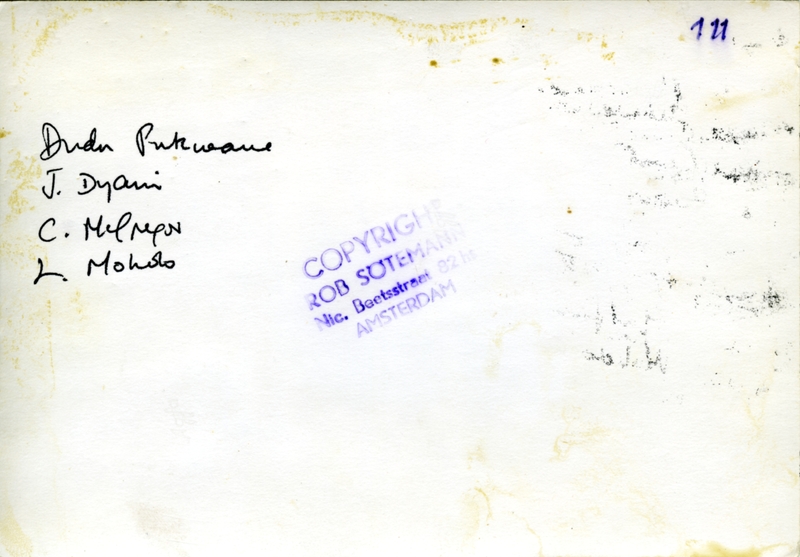 111
Dudu Pukwana
J. Dyani
C. McGregor
L. Moholo
COPYRIGHT
ROB SÖTEMANN
Nic. Beetsstraat 82 hs
AMSTERDAM